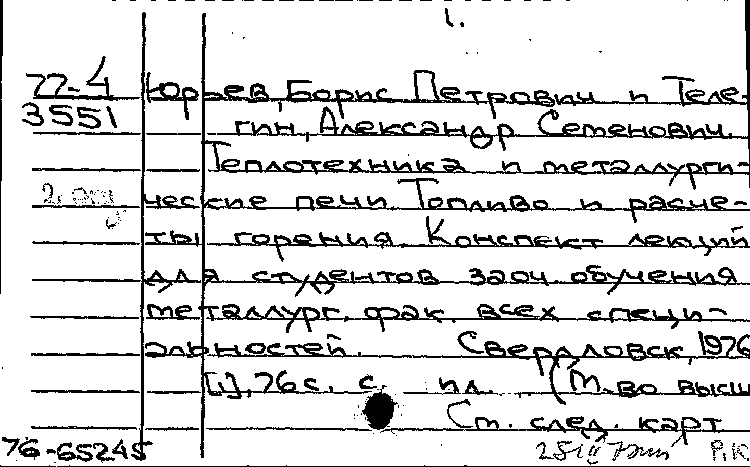 1.
77-4 Юрьев, Борис Петрович и Теле-
3551 гин, Александр Семенович.
Теплотехника и металлурги-
2 экз ческие печи. Топливо и расче-
ты горения. Конспект лекций
для студентов заоч. обучения
металлург. фак. всех специ-
альностей. Свердловск, 1976
[1], 76 с. с. ил. (М-во высш
См. след. карт
76-65245